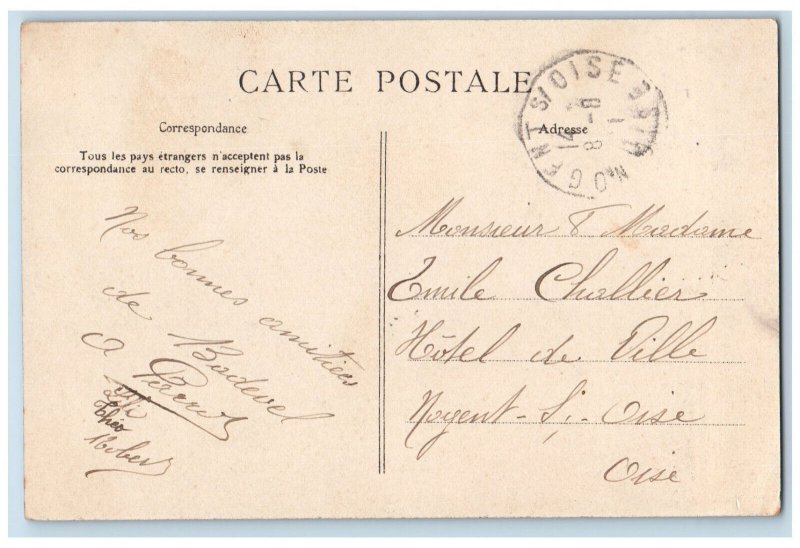 CARTE POSTALE
Correspondance
Tous les pays étrangers n'acceptent pas la
correspondance au recto, se renseigner à la Poste
Nos bonnes amitiées
de Badevel
Théo
Robert
Adresse
NOGENT S/ OISE
Monsieur & Madame
Emile Challier
Hôtel de Ville
Nogent-S/-Oise
Oise